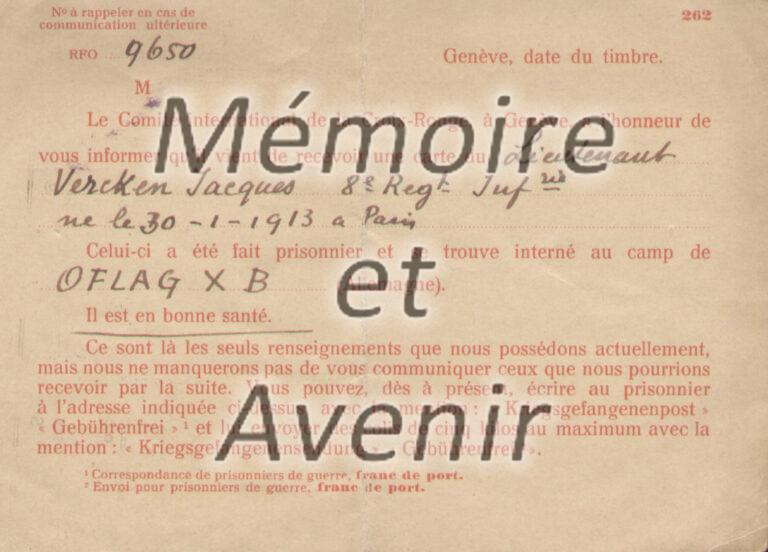 Nº à rappeler en cas de
communication ultérieure
262
RFO 9650
Genève, date du timbre.
M
Mémoire
Le Comité International de la Croix-Rouge à Genève a l'honneur de
vous informer qu'il vient de recevoir une carte du Lieutenant
Vercken Jacques 8e Regt Infrie
ne le 30-1-1913 a Paris
Celui-ci a été fait prisonnier et se trouve interné au camp de
et
OFLAG X B (Allemagne).
Il est en bonne santé.
Ce sont là les seuls renseignements que nous possédons actuellement,
mais nous ne manquerons pas de vous communiquer ceux que nous pourrions
recevoir par la suite. Vous pouvez, dès à présent, écrire au prisonnier
à l'adresse indiquée ci-dessus avec la mention : « Kriegsgefangenenpost »
Avenir
« Gebührenfrei »¹ et lui envoyer des colis de cinq kilos au maximum avec la
mention : « Kriegsgefangenensendung » « Gebührenfrei ².
¹ Correspondance de prisonniers de guerre, franc de port.
² Envoi pour prisonniers de guerre, franc de port.